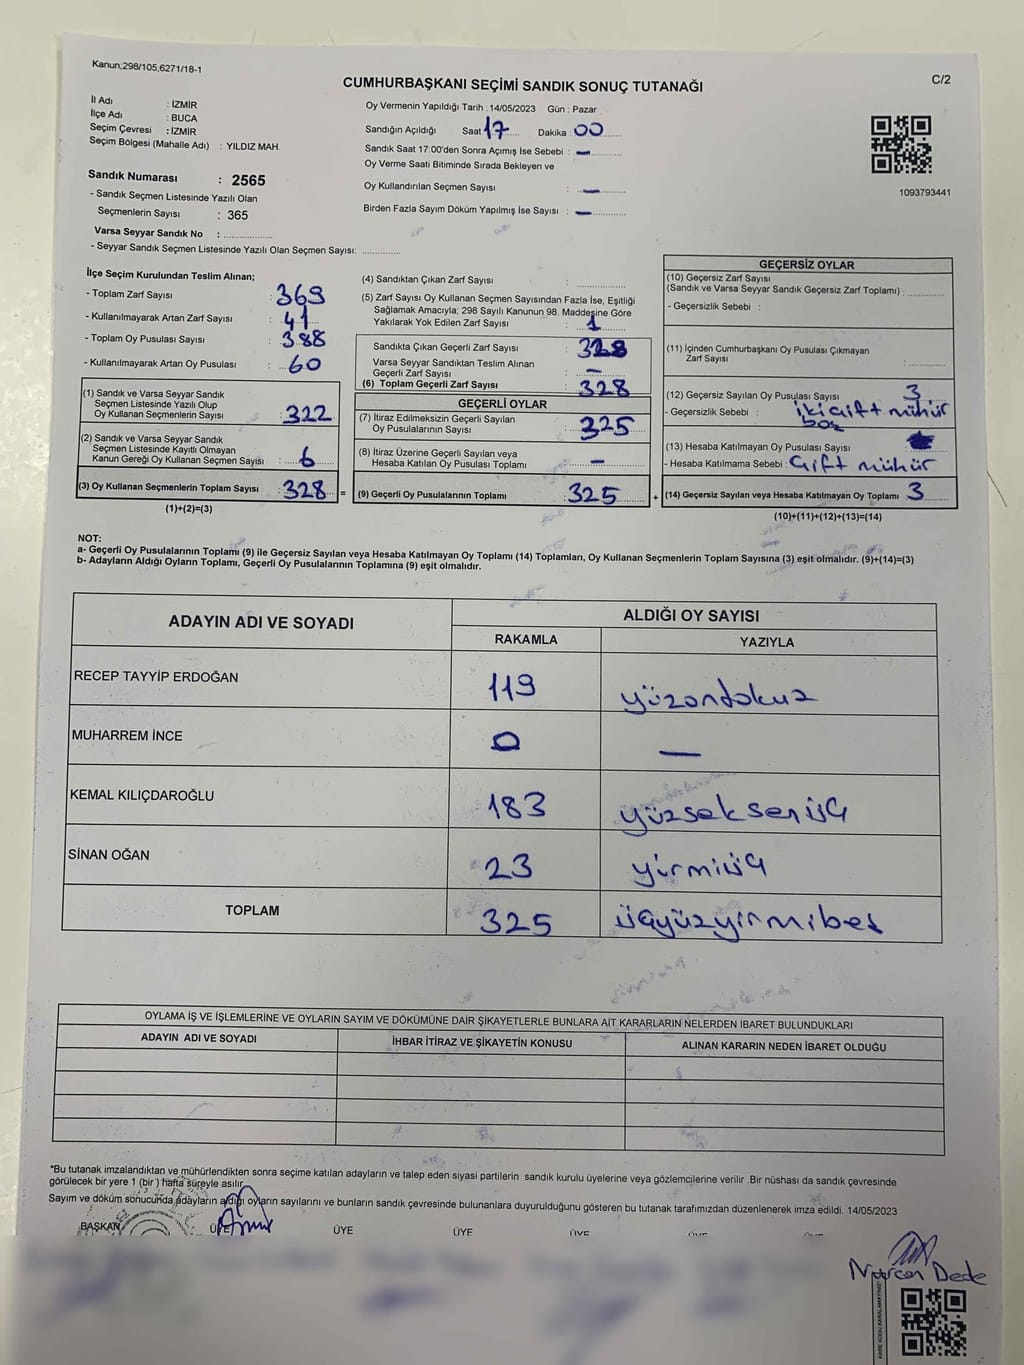 Kanun,298/105,6271/18-1
CUMHURBAŞKANI SEÇİMİ SANDIK SONUÇ TUTANAĞI
C/2
İl Adı : İZMİR
İlçe Adı : BUCA
Seçim Çevresi : İZMİR
Seçim Bölgesi (Mahalle Adı) : YILDIZ MAH.
Sandık Numarası : 2565
- Sandık Seçmen Listesinde Yazılı Olan
Seçmenlerin Sayısı : 365
Varsa Seyyar Sandık No :
- Seyyar Sandık Seçmen Listesinde Yazılı Olan Seçmen Sayısı:
Oy Vermenin Yapıldığı Tarih : 14/05/2023 Gün : Pazar
Sandığın Açıldığı Saat 17 Dakika : 00
Sandık Saat 17:00'den Sonra Açımış İse Sebebi : -
Oy Verme Saati Bitiminde Sırada Bekleyen ve
Oy Kullandırılan Seçmen Sayısı : -
Birden Fazla Sayım Döküm Yapılmış İse Sayısı : -
1093793441
İlçe Seçim Kurulundan Teslim Alınan;
- Toplam Zarf Sayısı : 369
- Kullanılmayarak Artan Zarf Sayısı : 41
- Toplam Oy Pusulası Sayısı : 388
- Kullanılmayarak Artan Oy Pusulası : 60
(1) Sandık ve Varsa Seyyar Sandık
Seçmen Listesinde Yazılı Olup
Oy Kullanan Seçmenlerin Sayısı : 322
(2) Sandık ve Varsa Seyyar Sandık
Seçmen Listesinde Kayıtlı Olmayan
Kanun Gereği Oy Kullanan Seçmen Sayısı : 6
(3) Oy Kullanan Seçmenlerin Toplam Sayısı : 328 =
(1)+(2)=(3)
(4) Sandıktan Çıkan Zarf Sayısı :
(5) Zarf Sayısı Oy Kullanan Seçmen Sayısından Fazla İse, Eşitliği
Sağlamak Amacıyla; 298 Sayılı Kanunun 98. Maddesine Göre
Yakılarak Yok Edilen Zarf Sayısı : 1
Sandıkta Çıkan Geçerli Zarf Sayısı : 328
Varsa Seyyar Sandıktan Teslim Alınan
Geçerli Zarf Sayısı : -
(6) Toplam Geçerli Zarf Sayısı : 328
GEÇERLİ OYLAR
(7) İtiraz Edilmeksizin Geçerli Sayılan
Oy Pusulalarının Sayısı : 325
(8) İtiraz Üzerine Geçerli Sayılan veya
Hesaba Katılan Oy Pusulası Toplamı : -
(9) Geçerli Oy Pusulalarının Toplamı : 325 +
GEÇERSİZ OYLAR
(10) Geçersiz Zarf Sayısı
(Sandık ve Varsa Seyyar Sandık Geçersiz Zarf Toplamı) :
- Geçersizlik Sebebi :
(11) İçinden Cumhurbaşkanı Oy Pusulası Çıkmayan
Zarf Sayısı :
(12) Geçersiz Sayılan Oy Pusulası Sayısı : 3
- Geçersizlik Sebebi : iki çift mühür
boş
(13) Hesaba Katılmayan Oy Pusulası Sayısı :
- Hesaba Katılmama Sebebi : Çift mühür
(14) Geçersiz Sayılan veya Hesaba Katılmayan Oy Toplamı : 3
(10)+(11)+(12)+(13)=(14)
NOT:
a- Geçerli Oy Pusulalarının Toplamı (9) ile Geçersiz Sayılan veya Hesaba Katılmayan Oy Toplamı (14) Toplamları, Oy Kullanan Seçmenlerin Toplam Sayısına (3) eşit olmalıdır. (9)+(14)=(3)
b- Adayların Aldığı Oyların Toplamı, Geçerli Oy Pusulalarının Toplamına (9) eşit olmalıdır.
ADAYIN ADI VE SOYADI ALDIĞI OY SAYISI
RAKAMLA YAZIYLA
RECEP TAYYİP ERDOĞAN 119 yüzondokuz
MUHARREM İNCE 0 -
KEMAL KILIÇDAROĞLU 183 yüzseksenüç
SİNAN OĞAN 23 yirmiüç
TOPLAM 325 üçyüzyirmibeş
OYLAMA İŞ VE İŞLEMLERİNE VE OYLARIN SAYIM VE DÖKÜMÜNE DAİR ŞİKAYETLERLE BUNLARA AİT KARARLARIN NELERDEN İBARET BULUNDUKLARI
ADAYIN ADI VE SOYADI İHBAR İTİRAZ VE ŞİKAYETİN KONUSU ALINAN KARARIN NEDEN İBARET OLDUĞU
*Bu tutanak imzalandıktan ve mühürlendikten sonra seçime katılan adayların ve talep eden siyasi partilerin sandık kurulu üyelerine veya gözlemcilerine verilir .Bir nüshası da sandık çevresinde
görülecek bir yere 1 (bir ) hafta süreyle asılır.
Sayım ve döküm sonucunda adayların aldığı oyların sayılarını ve bunların sandık çevresinde bulunanlara duyurulduğunu gösteren bu tutanak tarafımızdan düzenlenerek imza edildi. 14/05/2023
BAŞKAN ÜYE ÜYE ÜYE ÜYE
Dede